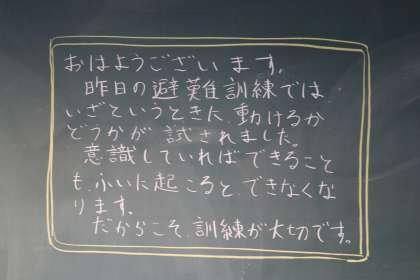 おはようございます。
昨日の避難訓練では
いざというときに、動けるか
どうかが試されました。
意識していればできること
も、ふいに起こると、できなくな
ります。
だからこそ、訓練が大切です。